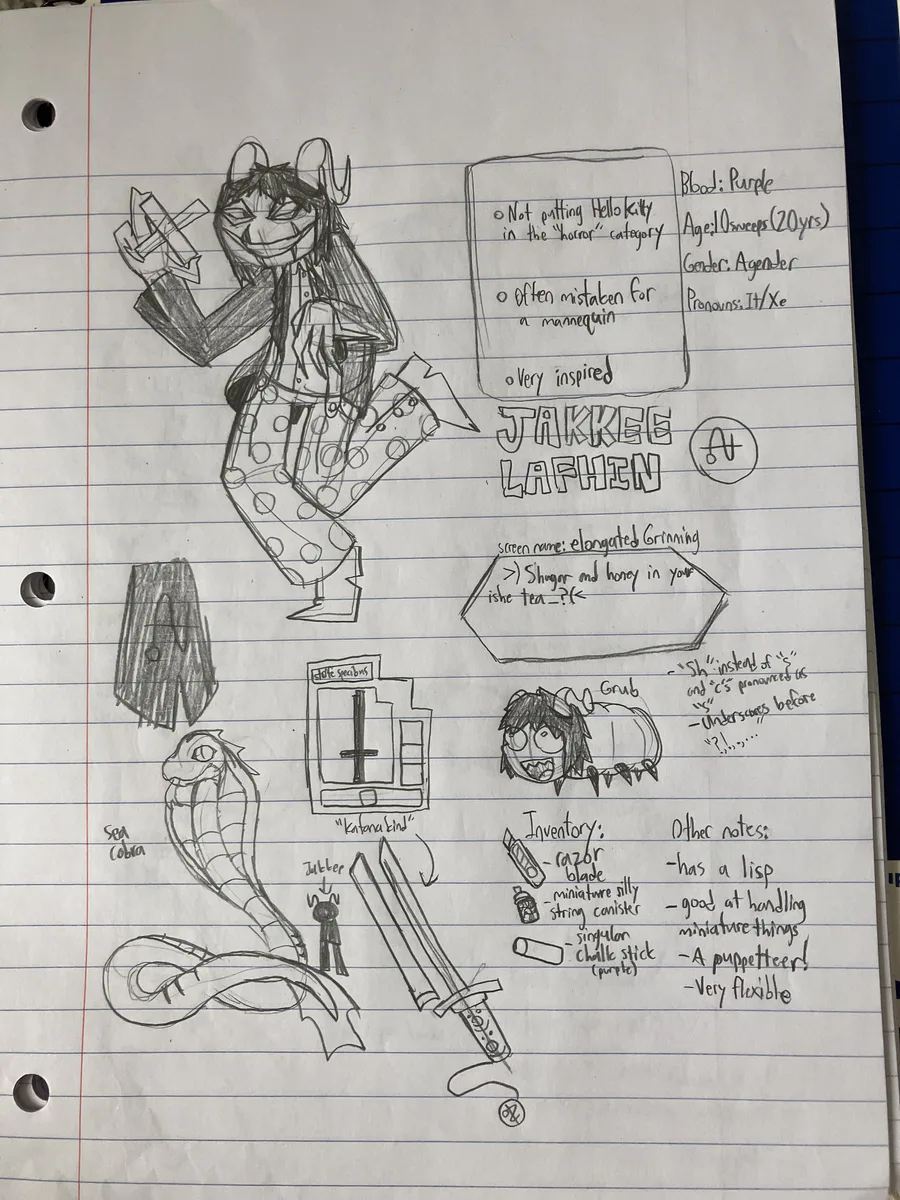 o Not putting Hello Kitty
in the "horror" category
o Often mistaken for
a mannequin
o Very inspired
Blood: Purple
Age: 10 sweeps (20 yrs)
Gender: Agender
Pronouns: It/Xe
JAKKEE
LAFHIN
screen name: elongated Grinning
>) Shugar and honey in your
ishe tea_?(<
- "Sh" instead of "s"
and "c's" pronounced as
"s"
- Underscores before
"?!,.,..."
Grub
strife specibus
"Katanakind"
Sea
Cobra
Jakkee
Inventory:
- razor
blade
- miniature silly
string canister
- singulon
chalk stick
(purple)
Other notes:
- has a lisp
- good at handling
miniature things
- A puppetteer!
- Very flexible